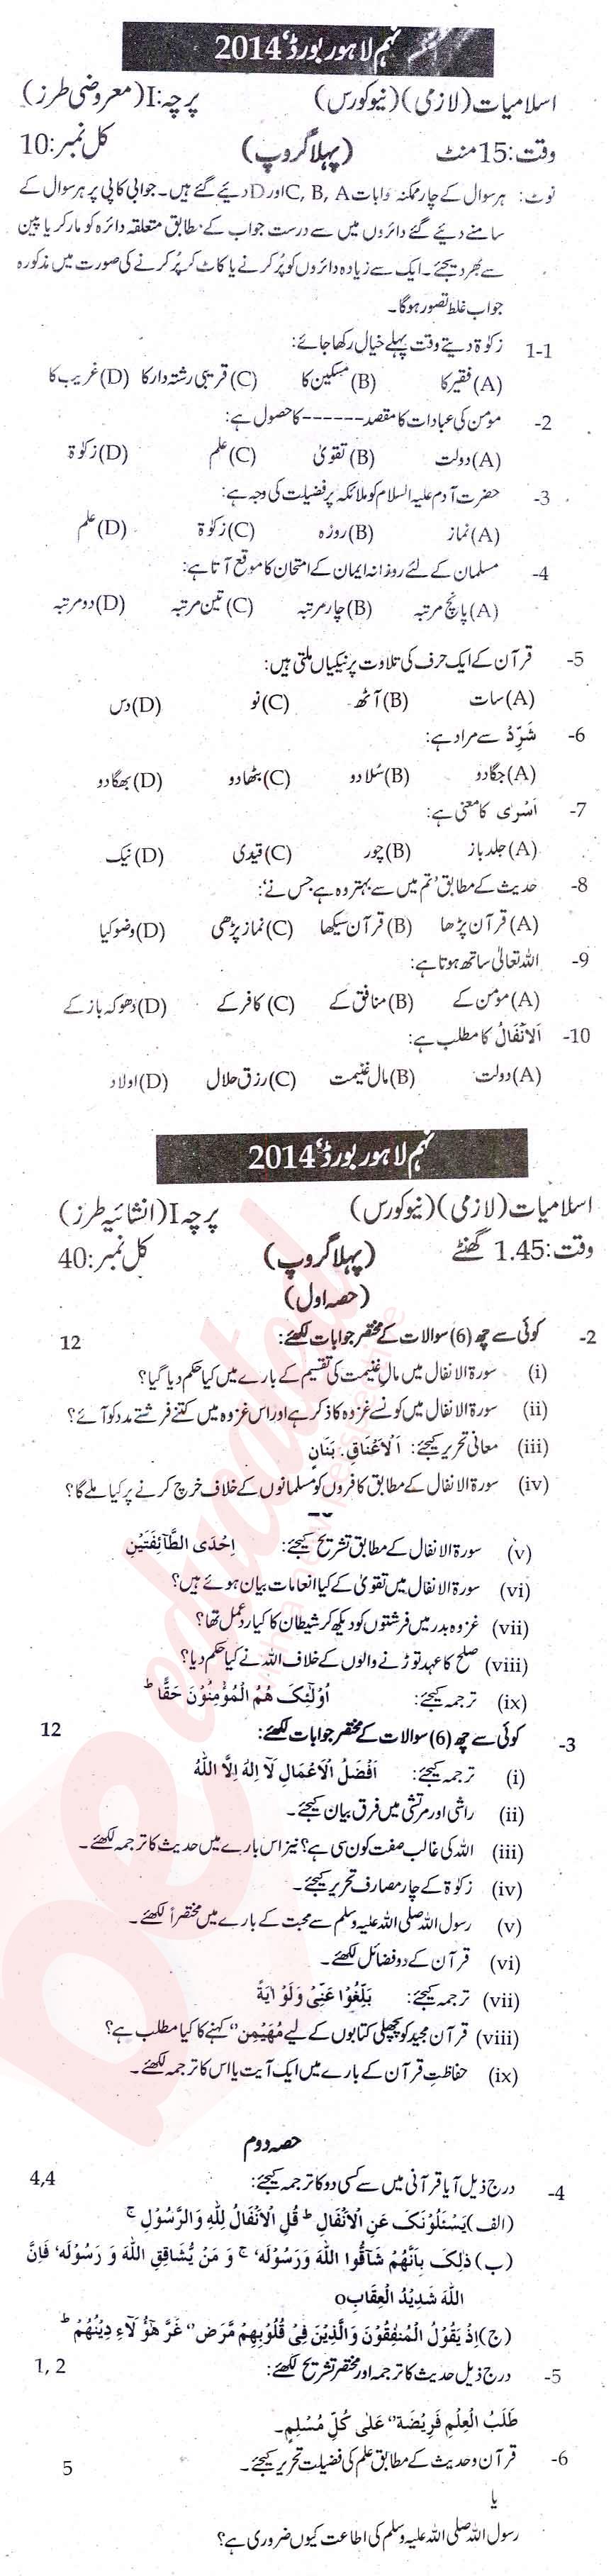 نہم لاہور بورڈ' 2014
اسلامیات (لازمی) (نیو کورس) پرچہ: I (معروضی طرز)
وقت: 15 منٹ (پہلا گروپ) کل نمبر: 10
نوٹ: ہر سوال کے چار ممکنہ جوابات C, B, A اور D دیئے گئے ہیں۔ جوابی کاپی پر ہر سوال کے
سامنے دیئے گئے دائروں میں سے درست جواب کے مطابق متعلقہ دائرہ کو مارکر یا پین
سے بھر دیجئے۔ ایک سے زیادہ دائروں کو پُر کرنے یا کاٹ کر پُر کرنے کی صورت میں مذکورہ
جواب غلط تصور ہوگا۔
1-1 زکوٰۃ دیتے وقت پہلے خیال رکھا جائے:
(A) فقیر کا (B) مسکین کا (C) قریبی رشتہ دار کا (D) غریب کا
2- مومن کی عبادات کا مقصد ------ کا حصول ہے:
(A) دولت (B) تقویٰ (C) علم (D) زکوٰۃ
3- حضرت آدم علیہ السلام کو ملائکہ پر فضیلت کی وجہ ہے:
(A) نماز (B) روزہ (C) زکوٰۃ (D) علم
4- مسلمان کے لئے روزانہ ایمان کے امتحان کا موقع آتا ہے:
(A) پانچ مرتبہ (B) چار مرتبہ (C) تین مرتبہ (D) دو مرتبہ
5- قرآن کے ایک حرف کی تلاوت پر نیکیاں ملتی ہیں:
(A) سات (B) آٹھ (C) نو (D) دس
6- شَرِّدْ سے مراد ہے:
(A) جگا دو (B) سُلا دو (C) بٹھا دو (D) بھگا دو
7- اَسْرٰی کا معنی ہے:
(A) جلد باز (B) چور (C) قیدی (D) نیک
8- حدیث کے مطابق 'تم میں سے بہتر وہ ہے جس نے':
(A) قرآن پڑھا (B) قرآن سیکھا (C) نماز پڑھی (D) وضو کیا
9- اللہ تعالیٰ ساتھ ہوتا ہے:
(A) مومن کے (B) منافق کے (C) کافر کے (D) دھوکہ باز کے
10- اَلْاَنْفَالُ کا مطلب ہے:
(A) دولت (B) مال غنیمت (C) رزق حلال (D) اولاد
نہم لاہور بورڈ' 2014
اسلامیات (لازمی) (نیو کورس) پرچہ I (انشائیہ طرز)
وقت: 1.45 گھنٹے (پہلا گروپ) کل نمبر: 40
(حصہ اول)
2- کوئی سے چھ (6) سوالات کے مختصر جوابات لکھئے: 12
(i) سورۃ الانفال میں مالِ غنیمت کی تقسیم کے بارے میں کیا حکم دیا گیا؟
(ii) سورۃ الانفال میں کونسے غزوہ کا ذکر ہے اور اس غزوہ میں کتنے فرشتے مدد کو آئے؟
(iii) معانی تحریر کیجئے: اَلْاَعْنَاقِ۔ بَنَانٍ
(iv) سورۃ الانفال کے مطابق کافروں کو مسلمانوں کے خلاف خرچ کرنے پر کیا ملے گا؟
(v) سورۃ الانفال کے مطابق تشریح کیجئے: اِحْدَی الطَّآئِفَتَیْنِ
(vi) سورۃ الانفال میں تقویٰ کے کیا انعامات بیان ہوئے ہیں؟
(vii) غزوہ بدر میں فرشتوں کو دیکھ کر شیطان کا کیا ردِ عمل تھا؟
(viii) صلح کا عہد توڑنے والوں کے خلاف اللہ نے کیا حکم دیا؟
(ix) ترجمہ کیجئے: اُولٰٓئِکَ ھُمُ الْمُؤْمِنُوْنَ حَقًّا ط
3- کوئی سے چھ (6) سوالات کے مختصر جوابات لکھئے: 12
(i) ترجمہ کیجئے: اَفْضَلُ الْاَعْمَالِ لَآ اِلٰہَ اِلَّا اللّٰہُ
(ii) راشی اور مرتشی میں فرق بیان کیجئے۔
(iii) اللہ کی غالب صفت کون سی ہے؟ نیز اس بارے میں حدیث کا ترجمہ لکھئے۔
(iv) زکوٰۃ کے چار مصارف تحریر کیجئے۔
(v) رسول اللہ صلی اللہ علیہ وسلم سے محبت کے بارے میں مختصراً لکھئے۔
(vi) قرآن کے دو فضائل لکھئے۔
(vii) ترجمہ کیجئے: بَلِّغُوْا عَنِّیْ وَلَوْ اٰیَۃً
(viii) قرآن مجید کو پچھلی کتابوں کے لیے مُھَیْمِن'' کہنے کا کیا مطلب ہے؟
(ix) حفاظتِ قرآن کے بارے میں ایک آیت یا اس کا ترجمہ لکھئے۔
حصہ دوم
4- درج ذیل آیاتِ قرآنی میں سے کسی دو کا ترجمہ کیجئے: 4,4
(الف) یَسْئَلُوْنَکَ عَنِ الْاَنْفَالِ ط قُلِ الْاَنْفَالُ لِلّٰہِ وَالرَّسُوْلِ ج
(ب) ذٰلِکَ بِاَنَّھُمْ شَآقُّوا اللّٰہَ وَرَسُوْلَہٗ ج وَ مَنْ یُّشَاقِقِ اللّٰہَ وَ رَسُوْلَہٗ فَاِنَّ
اللّٰہَ شَدِیْدُ الْعِقَابِ o
(ج) اِذْ یَقُوْلُ الْمُنٰفِقُوْنَ وَالَّذِیْنَ فِیْ قُلُوْبِھِمْ مَّرَض'' غَرَّ ھٰٓؤُلَآءِ دِیْنُھُمْ ط
5- درج ذیل حدیث کا ترجمہ اور مختصر تشریح لکھئے: 1, 2
طَلَبُ الْعِلْمِ فَرِیْضَۃ'' عَلٰی کُلِّ مُسْلِمٍ۔
6- قرآن و حدیث کے مطابق علم کی فضیلت تحریر کیجئے۔ 5
یا
رسول اللہ صلی اللہ علیہ وسلم کی اطاعت کیوں ضروری ہے؟